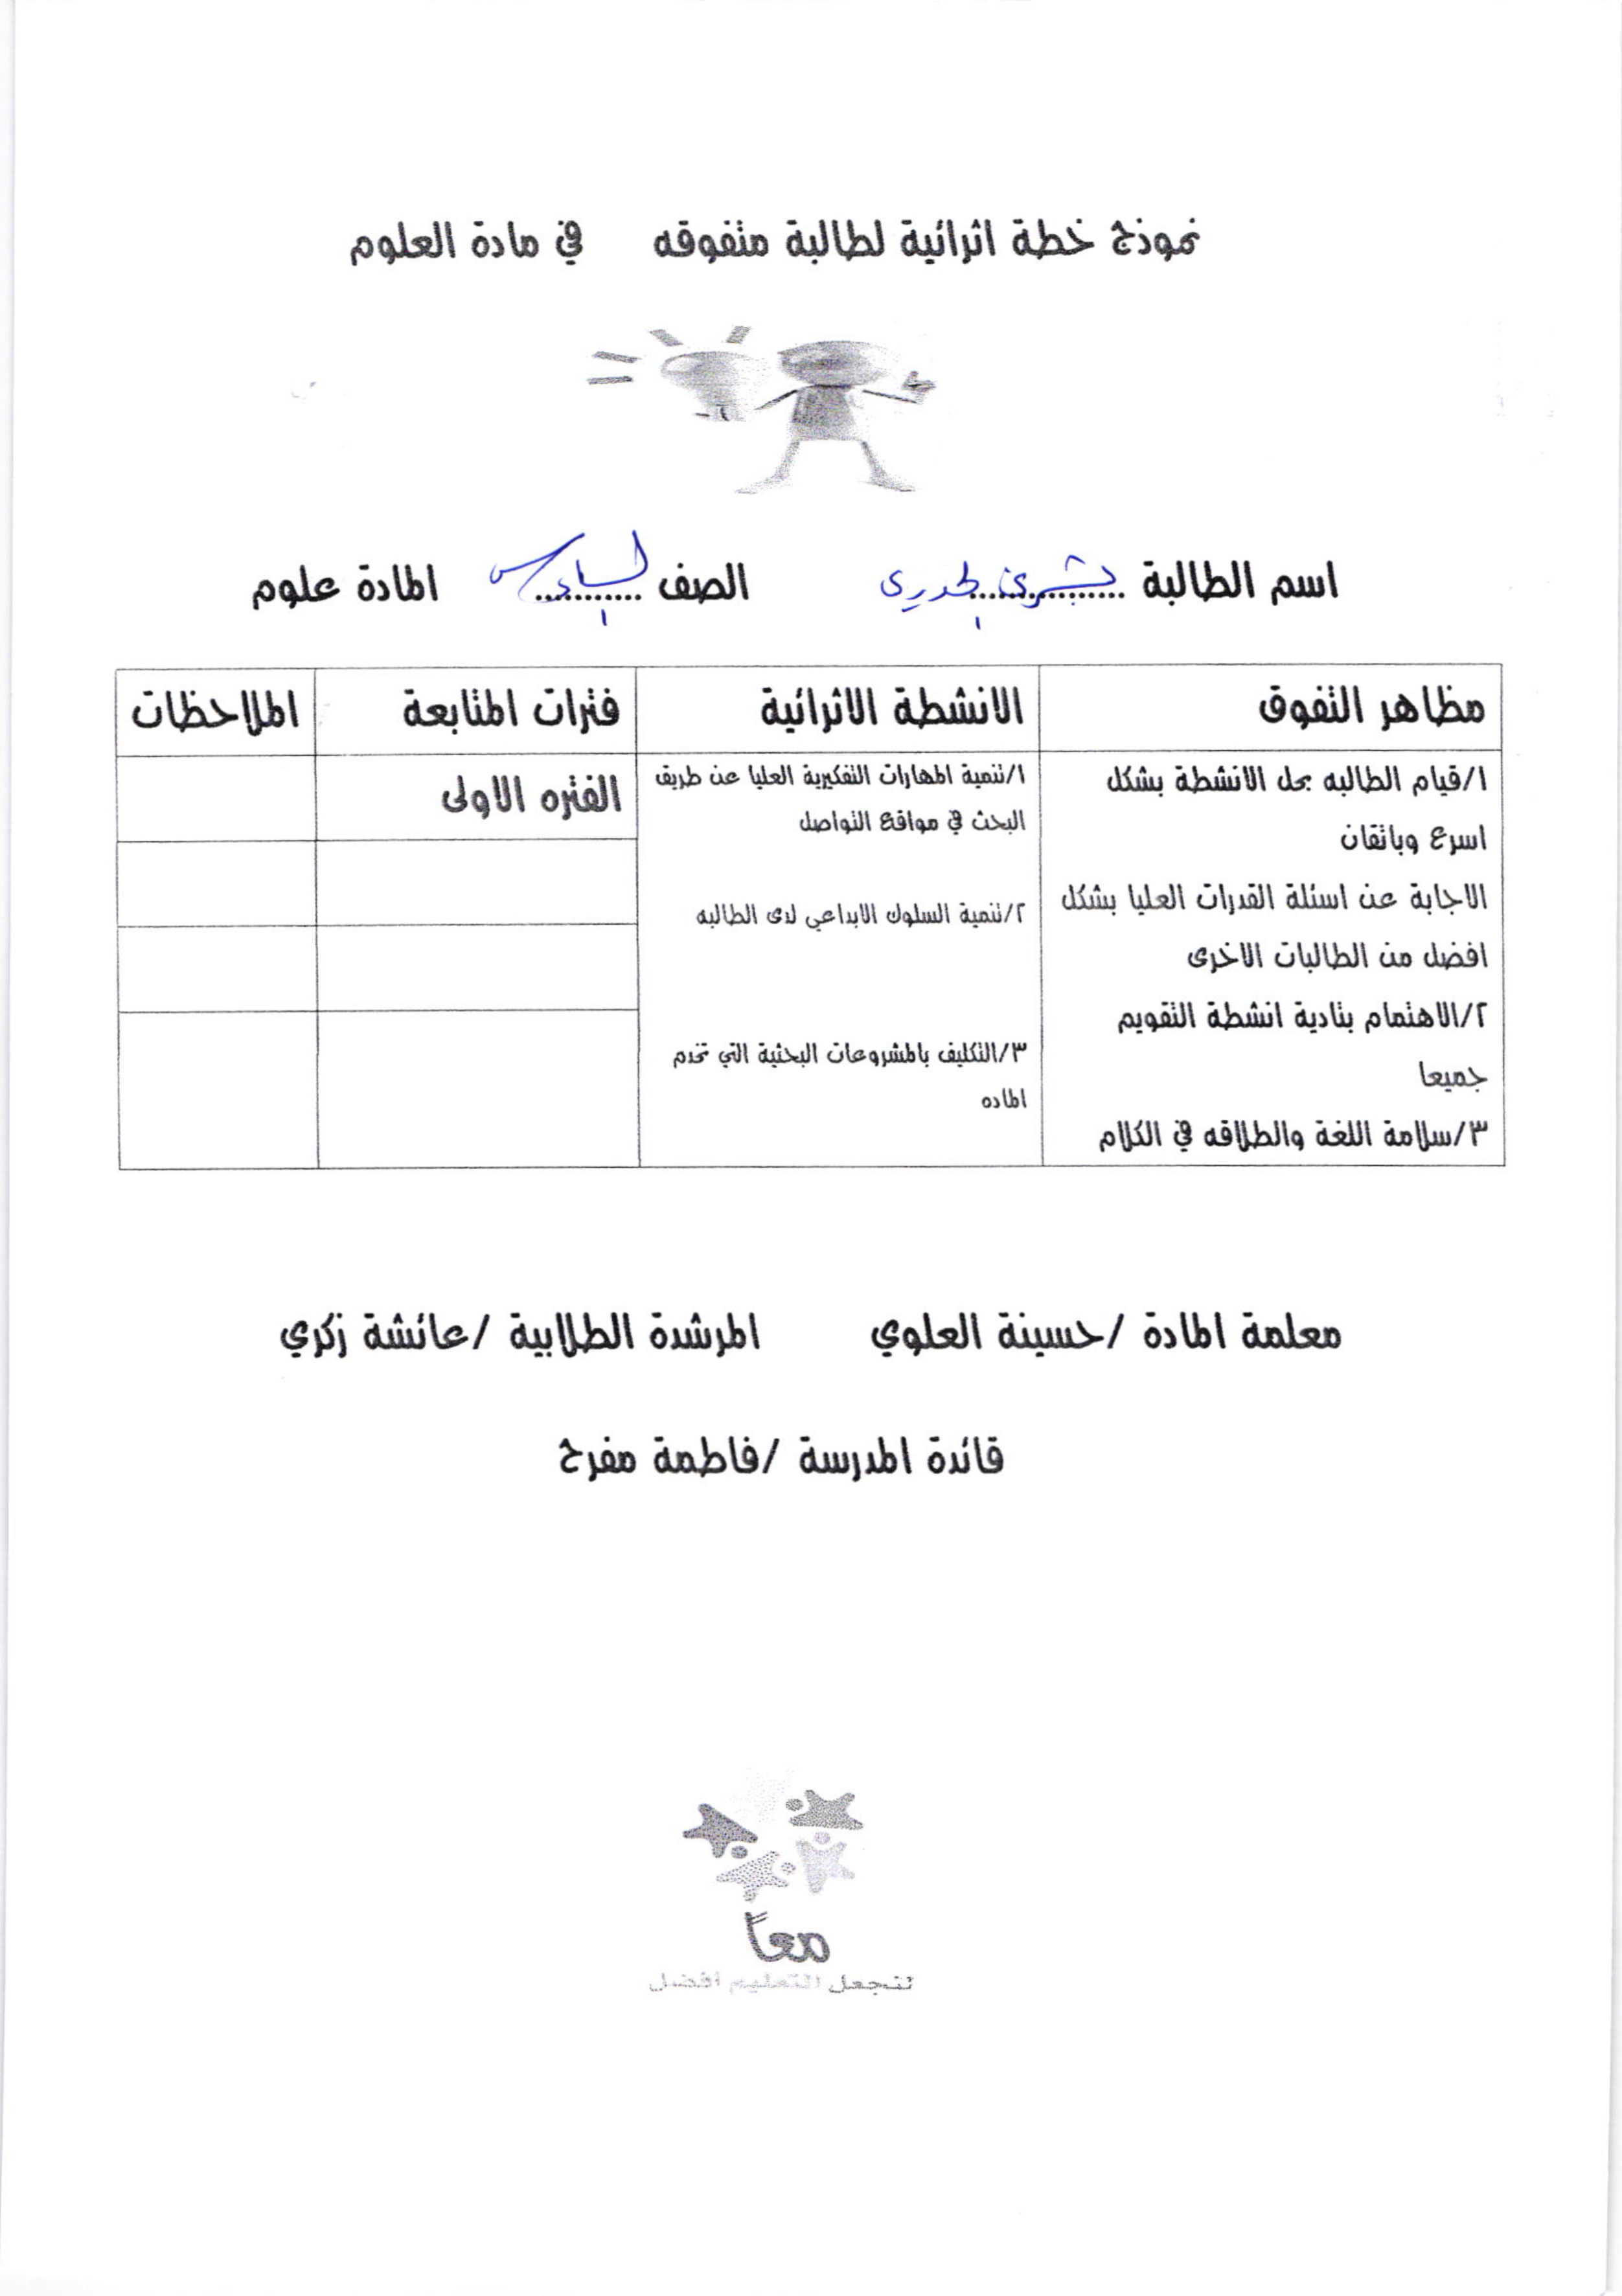 نموذج خطة اثرائية لطالبة متفوقه في مادة العلوم
اسم الطالبة بشرى الصف السادس المادة علوم
مظاهر التفوق الانشطة الاثرائية فترات المتابعة الملاحظات
١/قيام الطالبه بحل الانشطة بشكل
اسرع وباتقان
الاجابة عن اسئلة القدرات العليا بشكل
افضل من الطالبات الاخرى
٢/الاهتمام بتادية انشطة التقويم
جميعا
٣/سلامة اللغة والطلاقه في الكلام
١/تنمية المهارات التفكيرية العليا عن طريق
البحث في مواقع التواصل
٢/تنمية السلوك الابداعي لدى الطالبه
٣/التكليف بالمشروعات البحثية التي تخدم
الماده
الفتره الاولى
معلمة المادة /حسينة العلوي المرشدة الطلابية /عائشة زكري
قائدة المدرسة /فاطمة مفرح
معاً
لنجعل التعليم أفضل